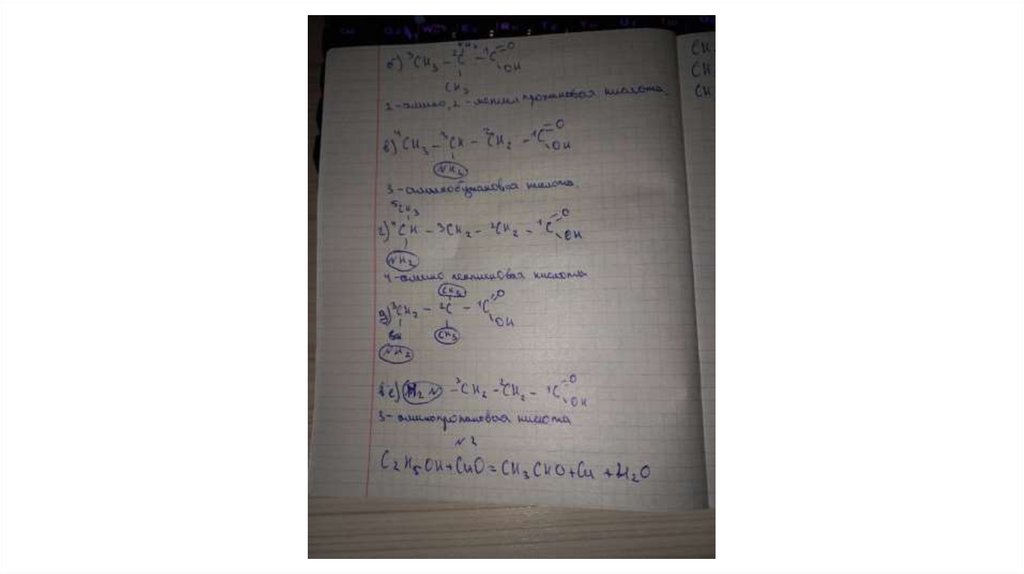 NH2
б) ³CH3 - ²C - ¹C =O
OH
CH3
2-амино, 2-метилпропановая кислота.
в) ⁴CH3 - ³CH - ²CH2 - ¹C =O
OH
NH2
3-аминобутановая кислота.
⁵CH3
г) ⁴CH - ³CH2 - ²CH2 - ¹C =O
OH
NH2
4-амино пентановая кислота
CH3
д) ³CH2 - ²C - ¹C =O
OH
CH3
NH2
е) H2N - ³CH2 - ²CH2 - ¹C =O
OH
3-аминопропановая кислота
N 2
C2H5OH + CuO = CH3CHO + Cu + H2O
CH
CH
CH